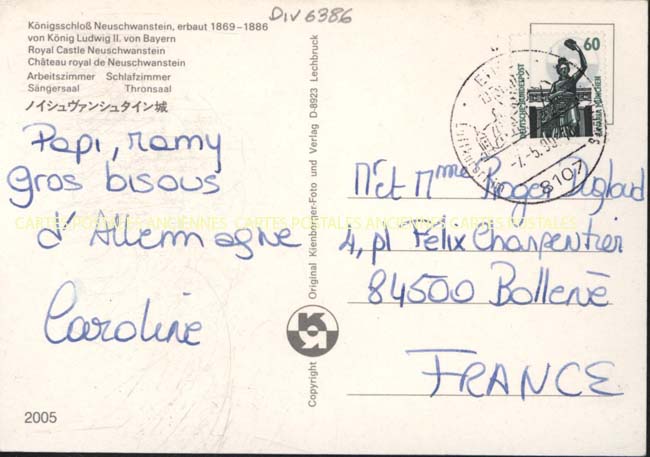 DIV 6386
Königsschloß Neuschwanstein, erbaut 1869-1886
von König Ludwig II. von Bayern
Royal Castle Neuschwanstein
Château royal de Neuschwanstein
Arbeitszimmer Schlafzimmer
Sängersaal Thronsaal
ノイシュヴァンシュタイン城
Papi, mamy
gros bisous
d'Allemagne
Caroline
2005
Copyright Original Kienberger-Foto und Verlag D-8923 Lechbruck
60
DEUTSCHE BUNDESPOST
BAVARIA MÜNCHEN
-7.-5.90
8107
Met Mme Roger
4, pl Félix Charpentier
84500 Bollène
FRANCE
CARTES POSTALES ANCIENNES CARTES POSTALES ANCIENNES CARTES POSTALES